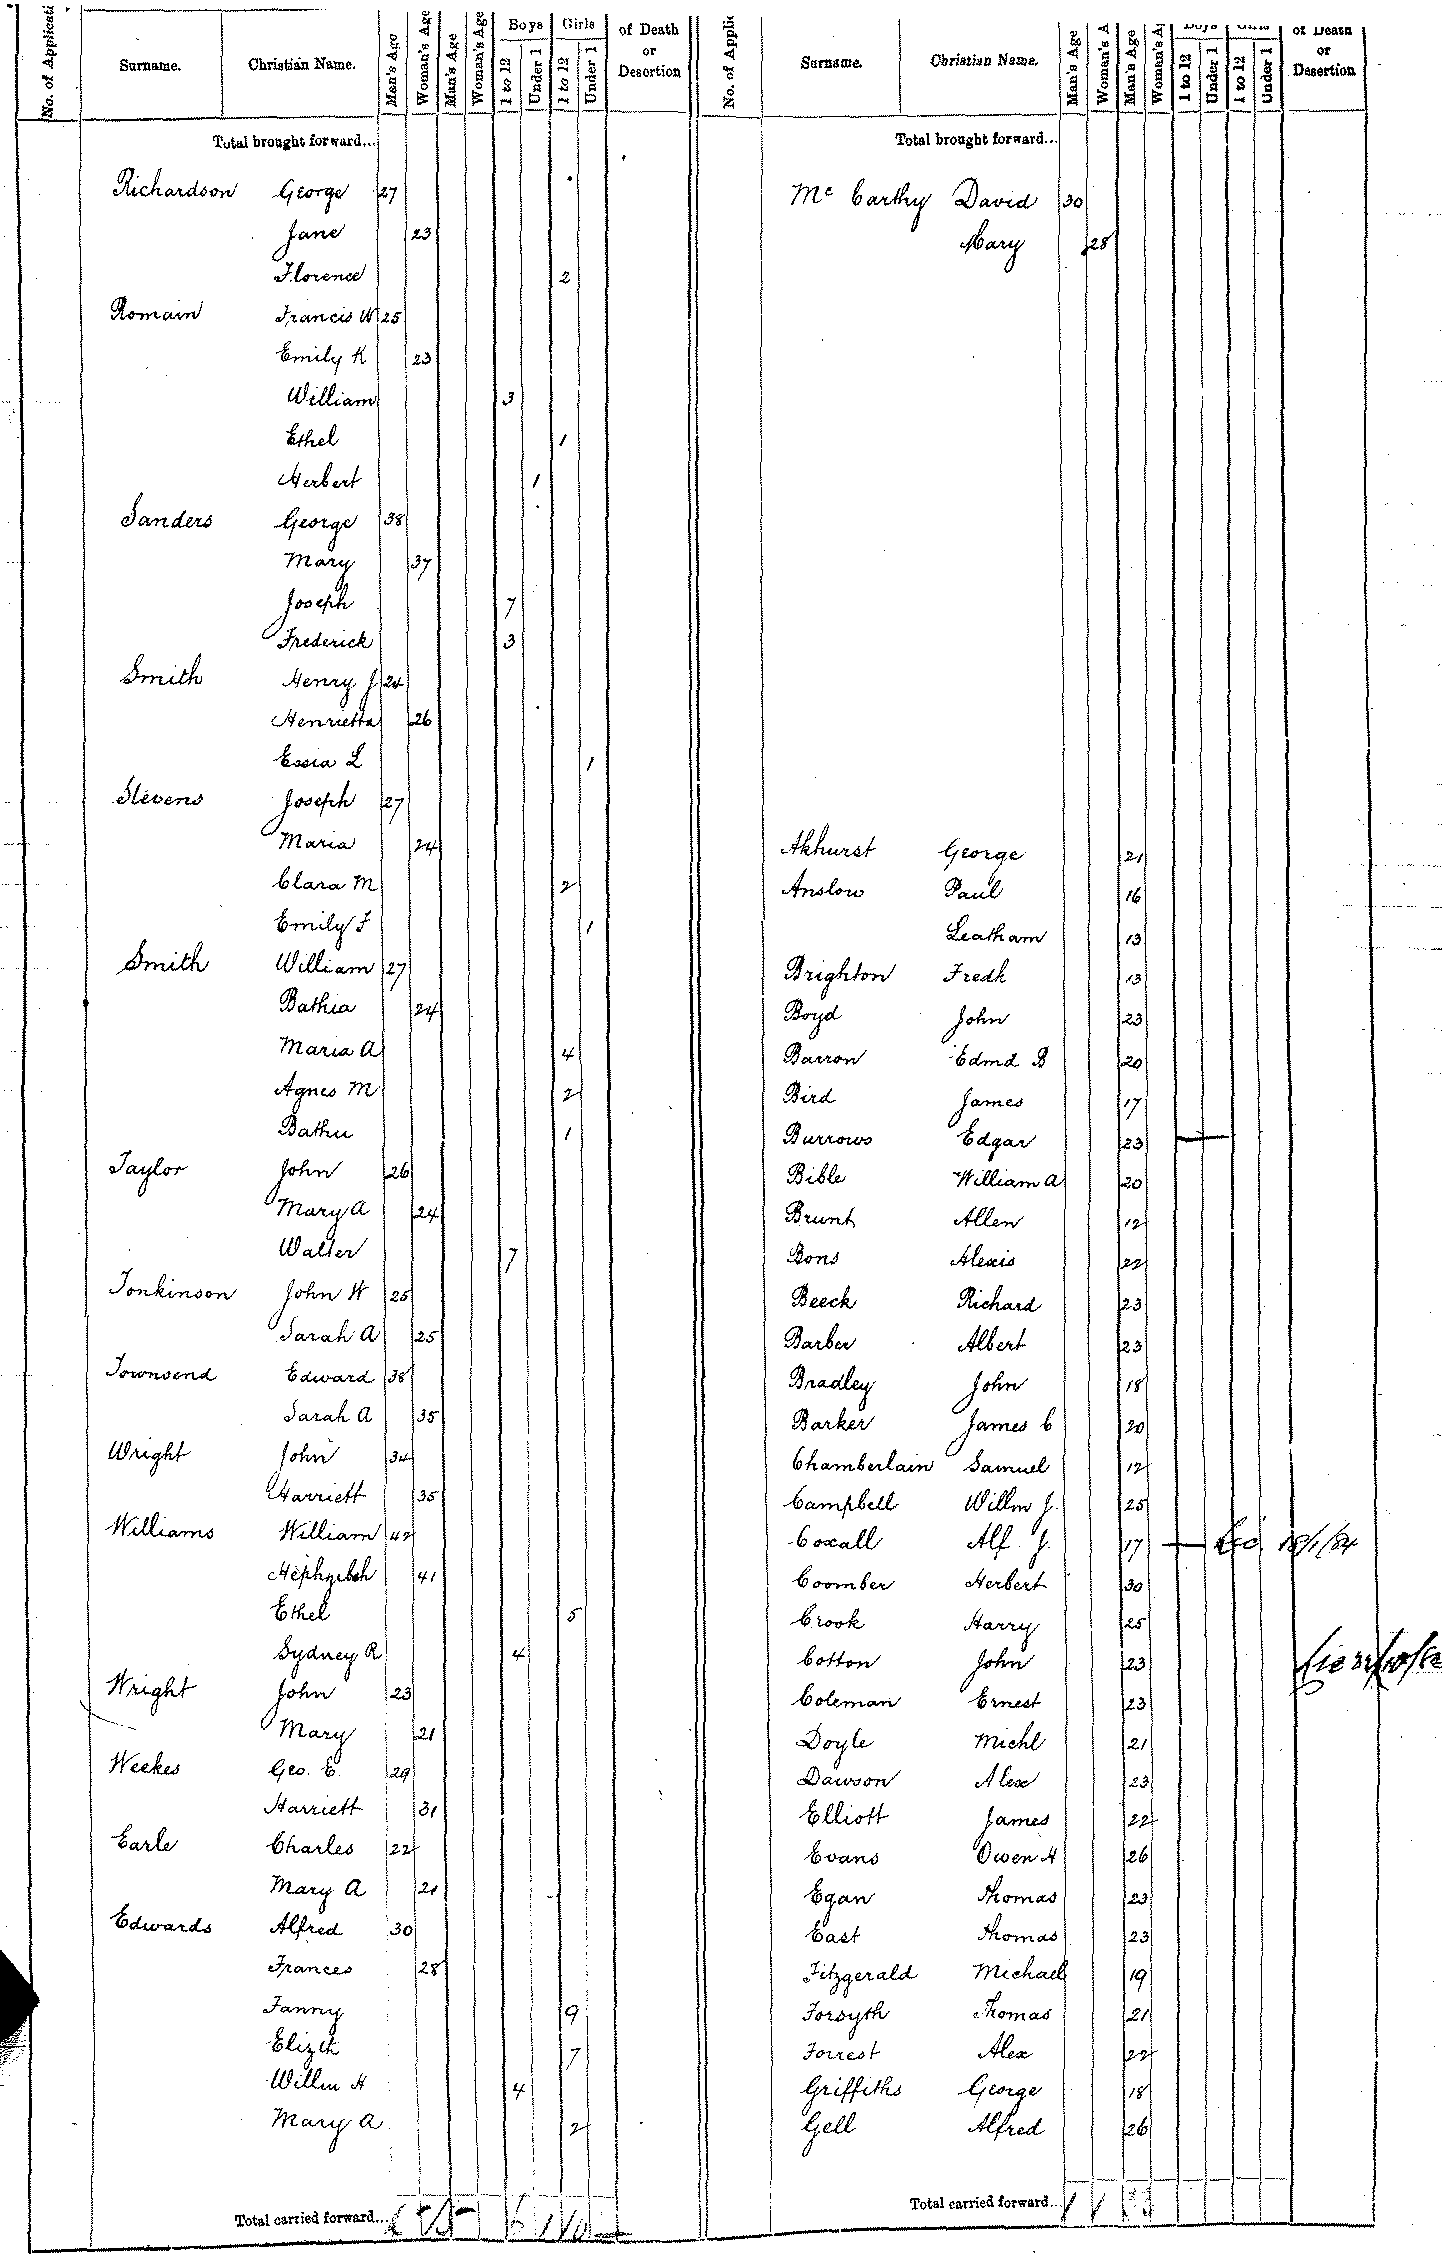 No. of Applicati
Surname.
Christian Name.
Men's Age
Woman's Age
Man's Age
Woman's Age
Boys
1 to 12
Under 1
Girls
1 to 12
Under 1
of Death
or
Desertion
Total brought forward...
Richardson George 27
Jane 23
Florence 2
Romain Francis W 25
Emily K 23
William 3
Ethel 1
Herbert 1
Sanders George 38
Mary 37
Joseph 7
Frederick 3
Smith Henry J 24
Henrietta 26
Essia L 1
Stevens Joseph 27
Maria 24
Clara M 2
Emily F 1
Smith William 27
Bathia 24
Maria A 4
Agnes M 2
Bathu 1
Taylor John 26
Mary A 24
Walter 7
Tonkinson John W 25
Sarah A 25
Townsend Edward 38
Sarah A 35
Wright John 34
Harriett 35
Williams William 42
41
Ethel 5
Sydney R 4
Wright John 23
Mary 21
Weekes Geo. E. 29
Harriett 31
Earle Charles 22
Mary A 21
Edwards Alfred 30
Frances 28
Fanny 9
Elizth 7
Willm H 4
Mary A 2
Total carried forward...
No. of Applic
Surname.
Christian Name.
Man's Age
Woman's A
Man's Age
Woman's Ag
Boys
1 to 12
Under 1
Girls
1 to 12
Under 1
of Death
or
Desertion
Total brought forward...
Mc Carthy David 30
Mary 28
Akhurst George 21
Anslow Paul 16
Leatham 13
Brighton Fredk 13
Boyd John 23
Barron Edmd B 20
Bird James 17
Burrows Edgar 23
Bible William A 20
Brunt Allen 12
Bons Alexis 22
Beeck Richard 23
Barber Albert 23
Bradley John 18
Barker James C 20
Chamberlain Samuel 12
Campbell Willm J. 25
Coxall Alf. J. 17 18/1/84
Coomber Herbert 30
Crook Harry 25
Cotton John 23
Coleman Ernest 23
Doyle Michl 21
Dawson Alex 23
Elliott James 22
Evans Owen H 26
Egan Thomas 23
East Thomas 23
Fitzgerald Michael 19
Forsyth Thomas 21
Forrest Alex 22
Griffiths George 18
Gell Alfred 26
Total carried forward...